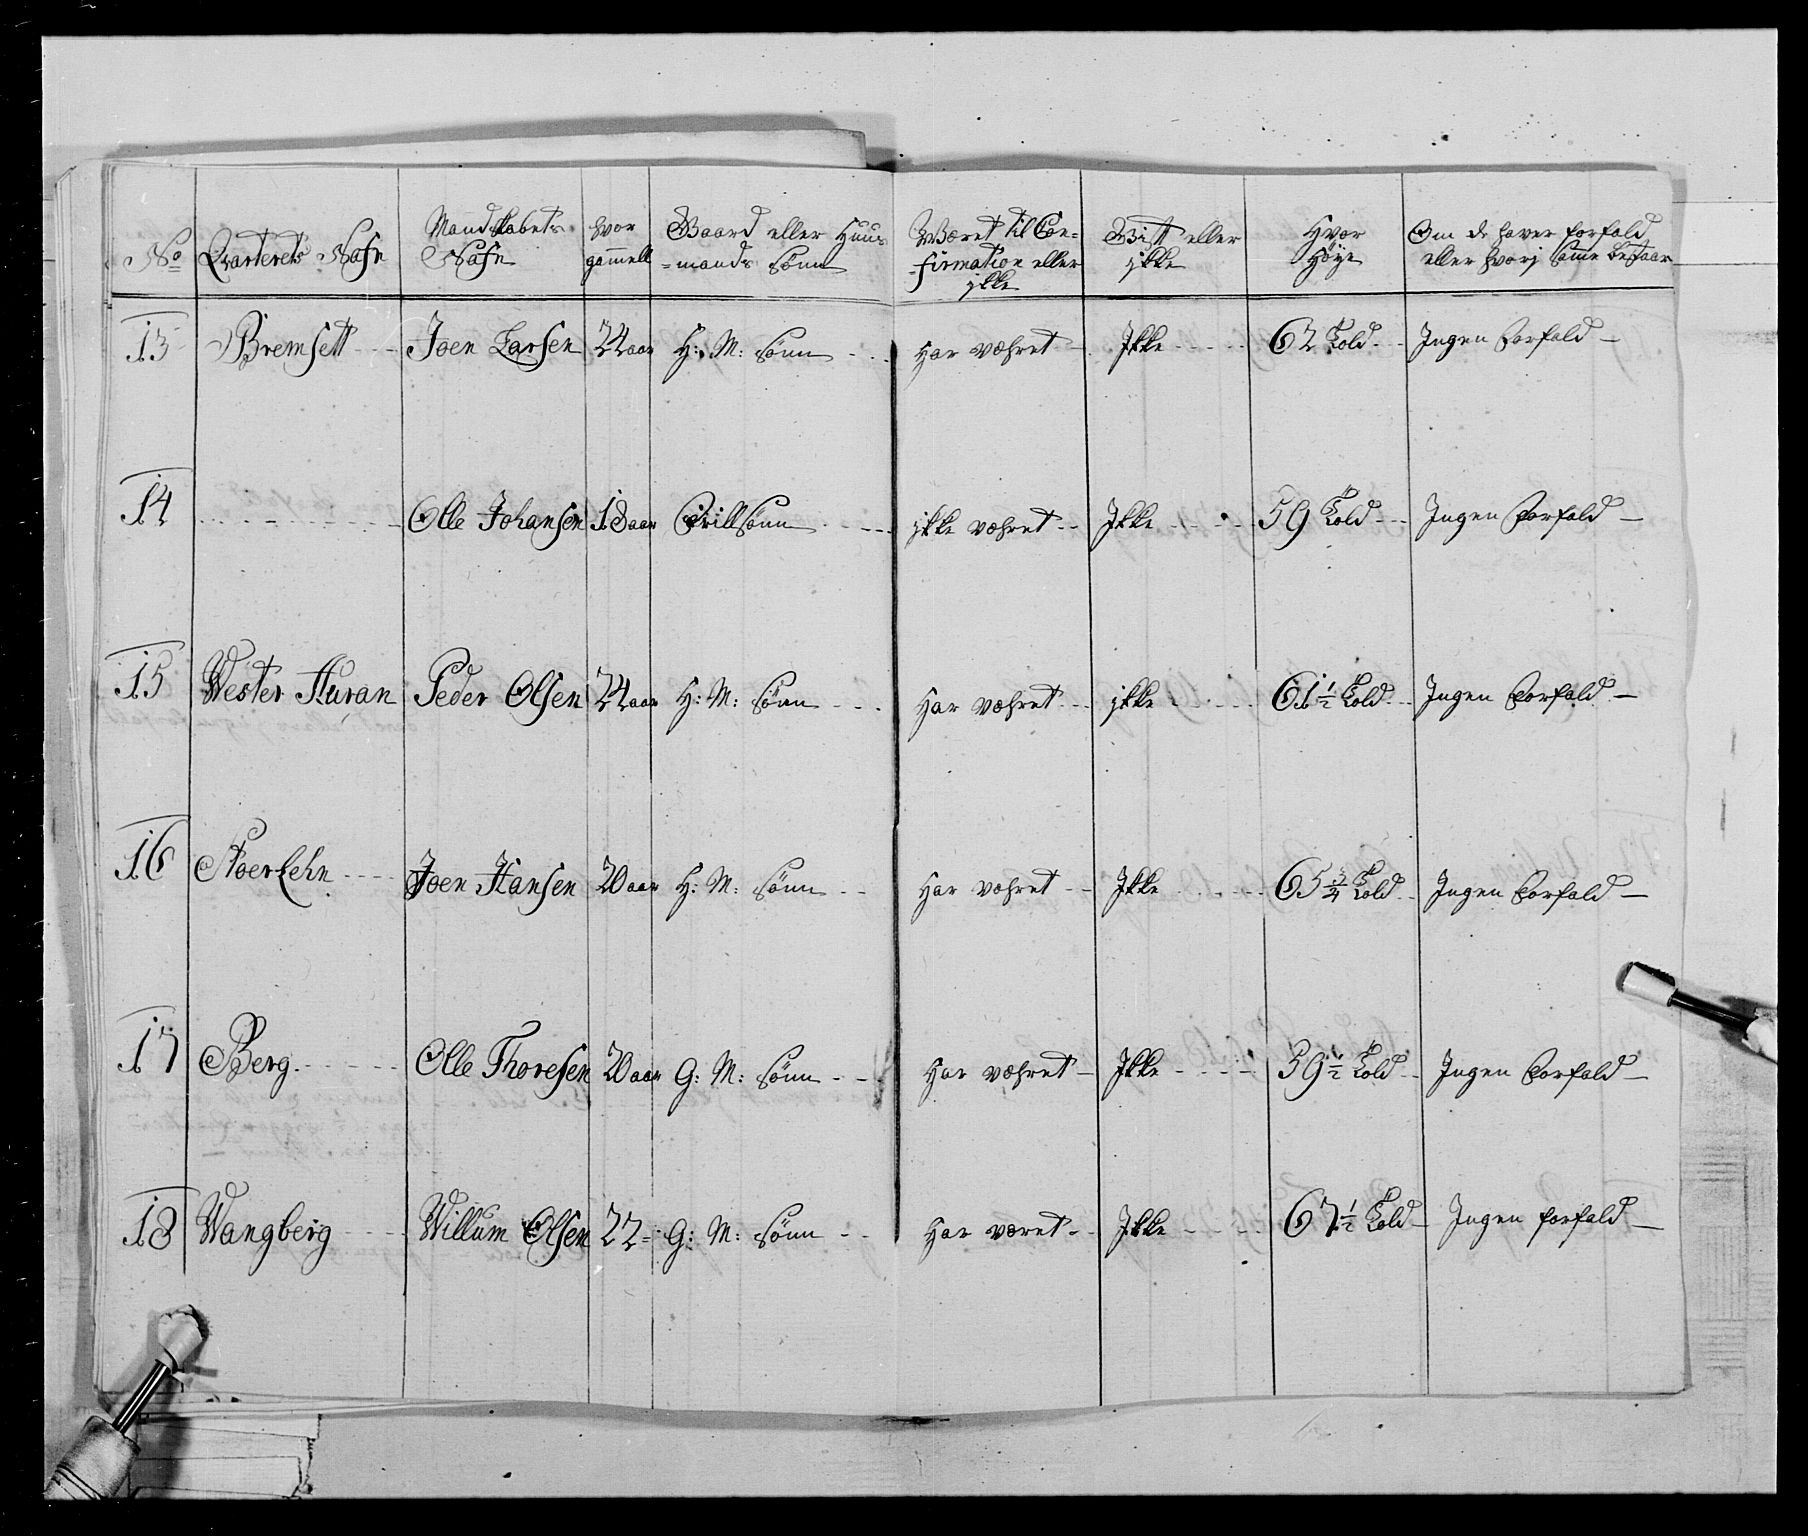 No | Qvarterets Nafn | Mandskabets Nafn | hvor gammell | Gaard eller Huus=mands Sønn | Wæret til Con=firmation eller ikke | Gift eller ikke | Hvor Høye | Om de haver forfald eller hvorj Same bestaar
13 | Bremsett | Joen Larsen | 22 aar | H: M: Sønn | Har væhret | Ikke | 62 Told | Ingen Forfald
14 | | Olle Johansen | 18 aar | Sønn | ikke væhret | Ikke | 59 Told | Ingen Forfald
15 | Wester Huran | Peder Olsen | 22 aar | H: M: Sønn | Har væhret | ikke | 61½ Told | Ingen Forfald
16 | | Joen Hansen | 20 aar | H: M: Sønn | Har væhret | Ikke | 65¾ Told | Ingen Forfald
17 | Berg | Olle Thoresen | 20 aar | G: M: Sønn | Har væhret | Ikke | 59½ Told | Ingen Forfald
18 | Wangberg | Willum Olsen | 22 | G: M: Sønn | Har været | Ikke | 67½ Told | Ingen forfald